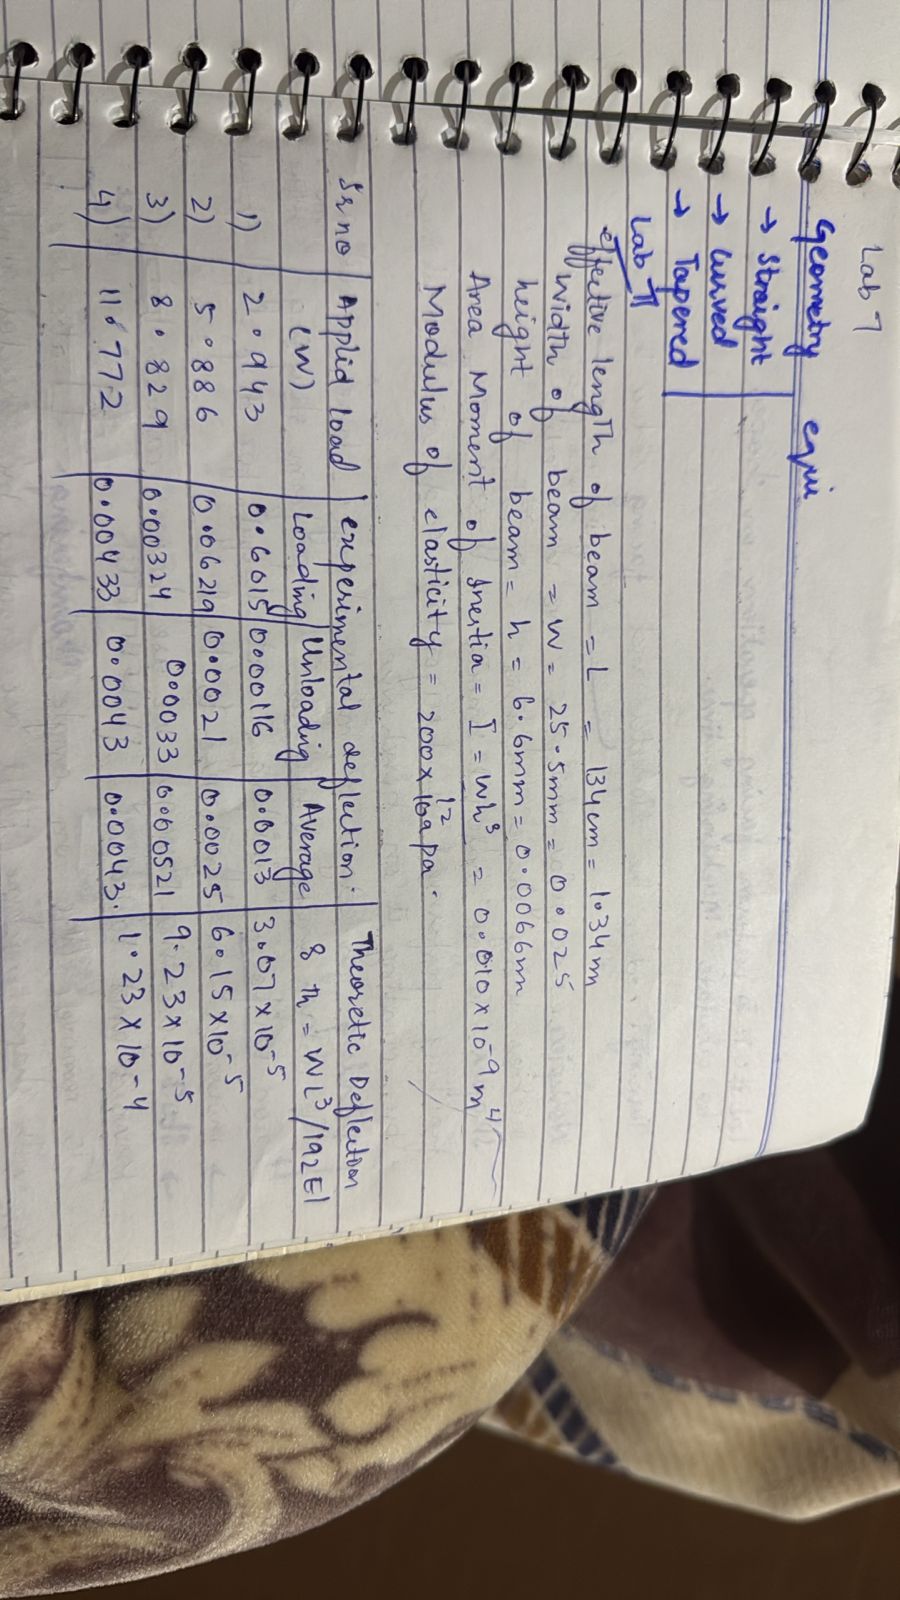 Lab 7
Geometry equi
→ Straight
→ Curved
→ Tapered
Lab 7
effective length of beam = L = 134cm = 1.34m
Width of beam = W = 25.5mm = 0.025
height of beam = h = 6.6mm = 0.0066m
Area Moment of Inertia = I = Wh³/12 = 0.010 x 10⁻⁹ m⁴
Modulus of elasticity = 200 x 109 pa.
Sr no Applid load (W) experimental deflection. Theoretic Deflection
Loading Unloading Average 8 th = WL³/192EI
1) 2.943 0.6015 0.000116 0.0013 3.07 x 10⁻⁵
2) 5.886 0.06219 0.0021 0.0025 6.15 x 10⁻⁵
3) 8.829 0.00324 0.0033 0.00521 9.23 x 10⁻⁵
4) 11.772 0.00433 0.0043 0.0043. 1.23 x 10-4